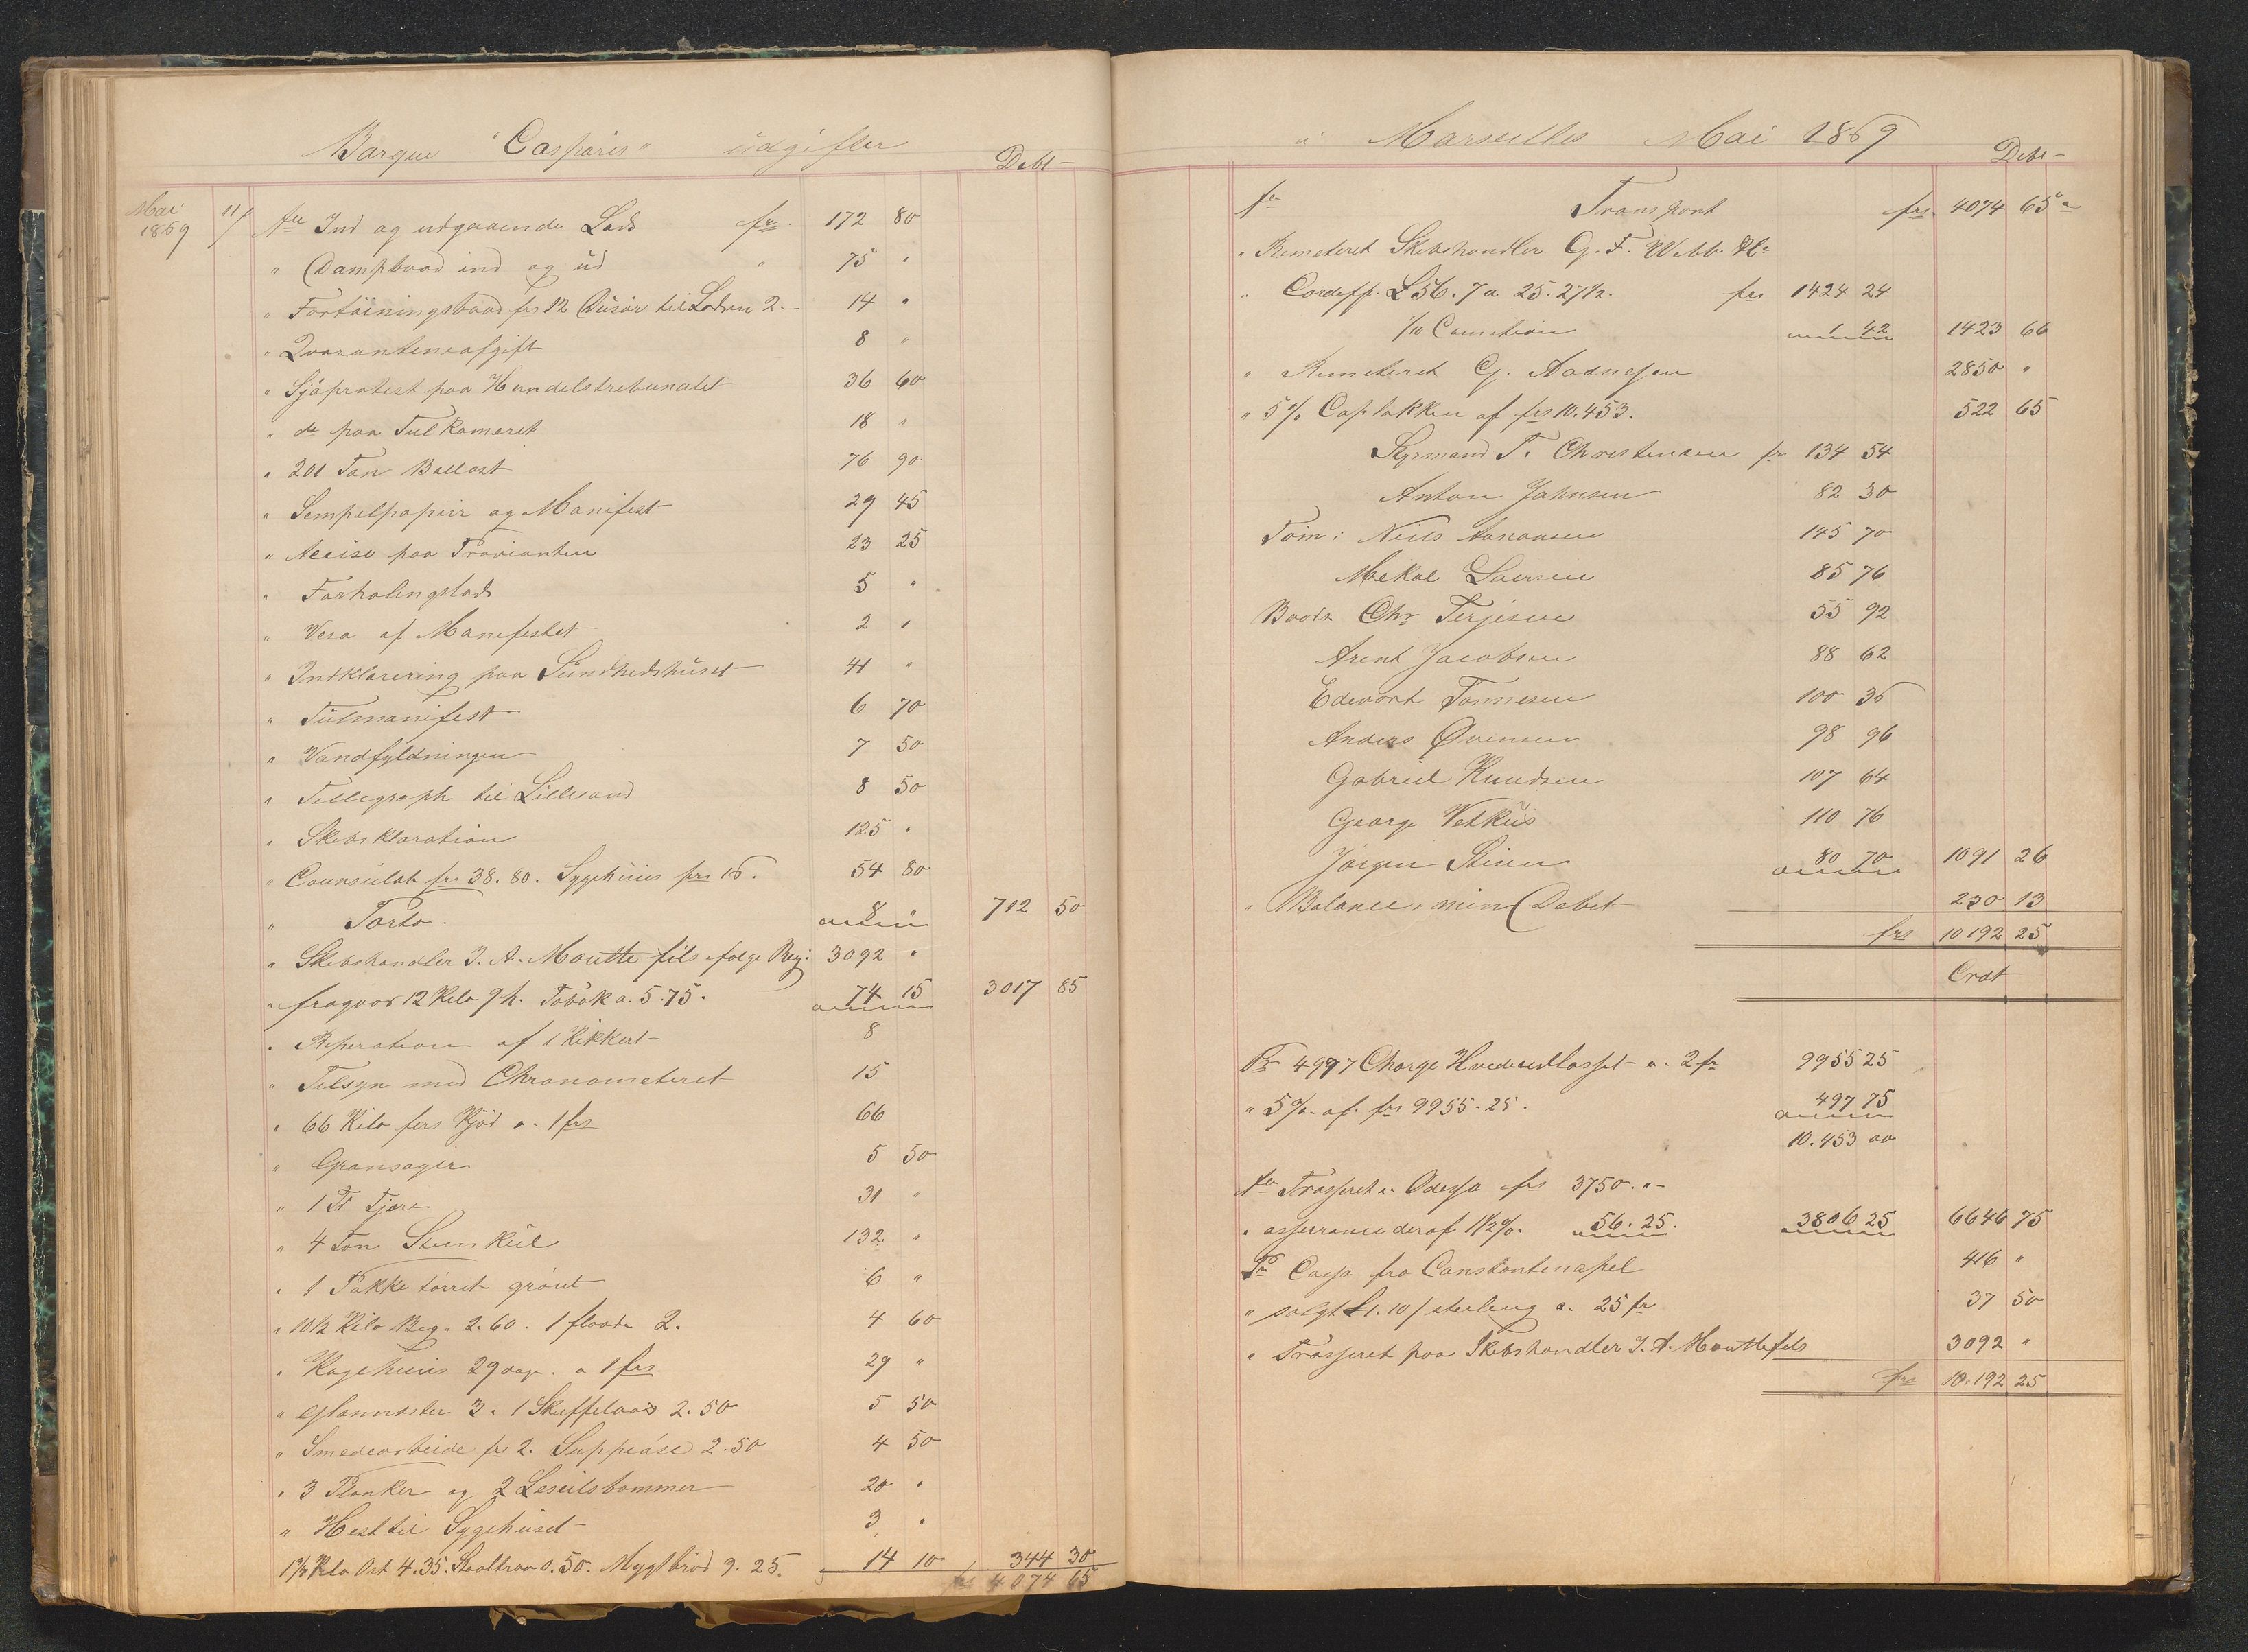 Barque "Casparis" udgifter
Debt
Mai 1869 11/ An Ind og utgaaende Lods frs. 172 80
" Dampbaad ind og ud " 75 "
" Fortöiningsbaad frs 12 Dusör til Lodsen 2.- 14 "
" Qvarantæneafgift 8 "
" Sjöprotest paa Handelstrebunalet 36 60
" do paa Tulkameret 18 "
" 201 Ton Ballast 76 90
" Stempelpapiir og Manifest 29 45
" Accise paa Provianten 23 25
" Forhalingslods 5 "
" Visa af Manifestet 2 "
" Indklarering paa Sundhedshuset 41 "
" Tulmanifest 6 70
" Vandfyldningen 7 50
" Tellegraph til Lillesand 8 50
" Skibsklaration 125 "
" Counsulat frs 38.80. Sygehuus frs 16. 54 80
" Porto. 8 " 712 50
" Skibshandler J. A. Moutte fils følge Reg: 3092 "
" fragaar 12 Kilo Tobak a. 5.75. 74 15 3017 85
" Reperation af 1 Kikkert 8
" Tilsyn med Chronometeret 15
" 66 Kilo fers Kjöd a. 1 frs 66
" Grønsager 5 50
" 1 Tr Tjære 31 "
" 4 Ton Steenkul 132 "
" 1 Pakke törret grönt 6 "
" 10½ Kilo Beg. 2.60. 1 2. 4 60
" Kogehuus 29 dage a 1 frs 29 "
" 3. 1 2.50 5 50
" Smedearbeide frs 2. 2.50 4 50
" 3 Planker og 2 Leseilsbommer 20 "
" Hest til Sygehuset 3 "
Kilo Ost 4.35. 0.50. 9.25. 14 10 344 30
frs 4074 65
i Marseilles Mai 1869
Debt
An Transport frs. 4074 65
" Remeteret Skibshandler G. F. Webb &
" Cardiff. £56.7 a 25.27½. frs 1424 24
1/10 Comition 1 42 1423 66
" Remeteret G. Aadnesen 2850 "
" 5% Caplakken af frs 10.453. 522 65
Styrmand T. Christensen fr 134 54
Anton Johnsen 82 30
Töm: Niels Aanonsen 145 70
Mekal Larsen 85 76
Baads. Chr Terjesen 55 92
Arent Jacobsen 88 62
Edevart Tønnesen 100 36
Anders 98 96
Gabriel Knudsen 107 64
George 110 76
Jörgen 80 70 1091 26
" Balance min Debet 230 13
frs 10192 25
Crdt
Pr 4997 Charge Hvede udlosset a. 2 fr 9955 25
" 5% af. frs 9955.25. 497 75
10.453 00
An Trasseret i Odessa frs 3750. "-
" asserrance deraf 1½%. 56.25. 3806 25 6646 75
Pr Cassa fra Constantenopel 416 "
" solgt £1.10/ sterling a. 25 fr 37 50
" Trasseret paa Skibshandler J. A. Moutte fils 3092 "
frs 10.192 25